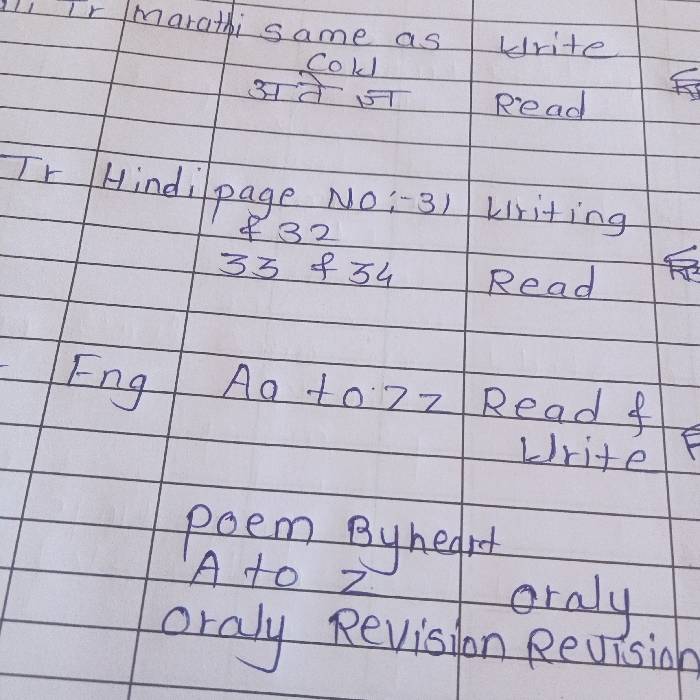 Tr Marathi same as Write
अ ते ज्ञ Read
Tr Hindi page No:-31 Writing
& 32
33 & 34 Read
Eng Aa to zz Read &
Write
poem Byheart
A to Z oraly
oraly Revision Revision